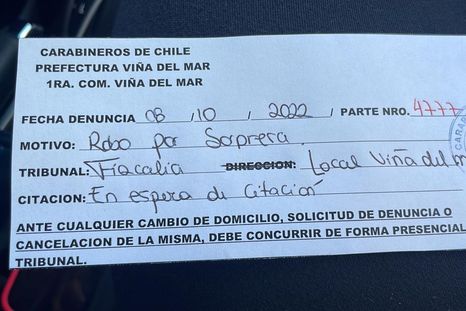 CARABINEROS DE CHILE
PREFECTURA VIÑA DEL MAR
1RA. COM. VIÑA DEL MAR
FECHA DENUNCIA 08 / 10 / 2022 / PARTE NRO. 4777
MOTIVO: Robo por Sorpresa.
TRIBUNAL: Fiscalia DIRECCION: Local Viña del m
CITACION: En espera de Citación
ANTE CUALQUIER CAMBIO DE DOMICILIO, SOLICITUD DE DENUNCIA O
CANCELACION DE LA MISMA, DEBE CONCURRIR DE FORMA PRESENCIAL
TRIBUNAL.
CARAB